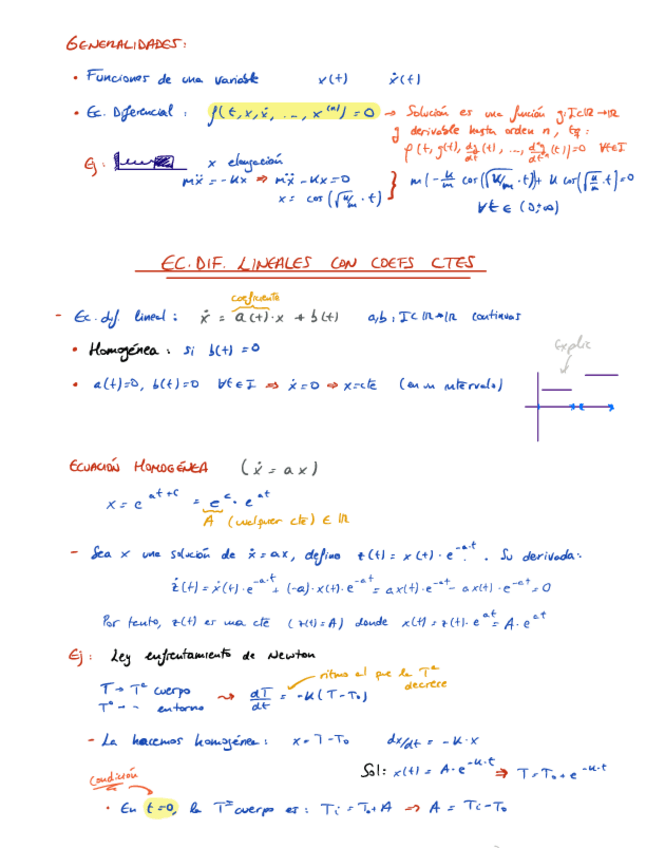 GENERALIDADES:
• Funciones de una variable x(t) ẋ(t)
• Ec. Diferencial: f(t, x, ẋ, ..., x⁽ⁿ⁾) = 0 → Solución es una función g: I⊂ℝ→ℝ
g derivable hasta orden n, tq:
f(t, g(t), dg/dt (t), ..., dⁿg/dtⁿ (t)) = 0 ∀t∈I
Ej: x elongación
mẍ = -kx ⇒ mẍ - kx = 0
x = cos(√k/m · t) } m(-k/m cos(√k/m · t)) + k cos(√k/m · t) = 0
∀t ∈ (0, +∞)
EC. DIF. LINEALES CON COEFS CTES
coeficiente
- Ec. dif. lineal: ẋ = a(t)·x + b(t) a,b: I⊂ℝ→ℝ continuas
• Homogénea: si b(t) = 0
Explic
• a(t)=0, b(t)=0 ∀t∈I ⇒ ẋ=0 ⇒ x=cte (en un intervalo)
ECUACIÓN HOMOGÉNEA (ẋ = ax)
x = e^(at+c) = e^c · e^(at)
A (cualquier cte) ∈ ℝ
- Sea x una solución de ẋ = ax, defino z(t) = x(t) · e^(-a·t). Su derivada:
ż(t) = ẋ(t)·e^(-a·t) + (-a)·x(t)·e^(-at) = ax(t)·e^(-at) - ax(t)·e^(-at) = 0
Por tanto, z(t) es una cte (z(t)=A) donde x(t) = z(t)·e^(at) = A·e^(at)
Ej: Ley enfriamiento de Newton
ritmo al que la Tª decrece
T → Tª cuerpo ⇝ dT/dt = -k(T-T₀)
T° → " entorno
- La hacemos homogénea: x = T-T₀ dx/dt = -k·x
Sol: x(t) = A·e^(-k·t) ⇒ T = T₀ + e^(-k·t)
Condición
• En t=0, la Tª cuerpo es: Ti = T₀+A ⇒ A = Ti-T₀